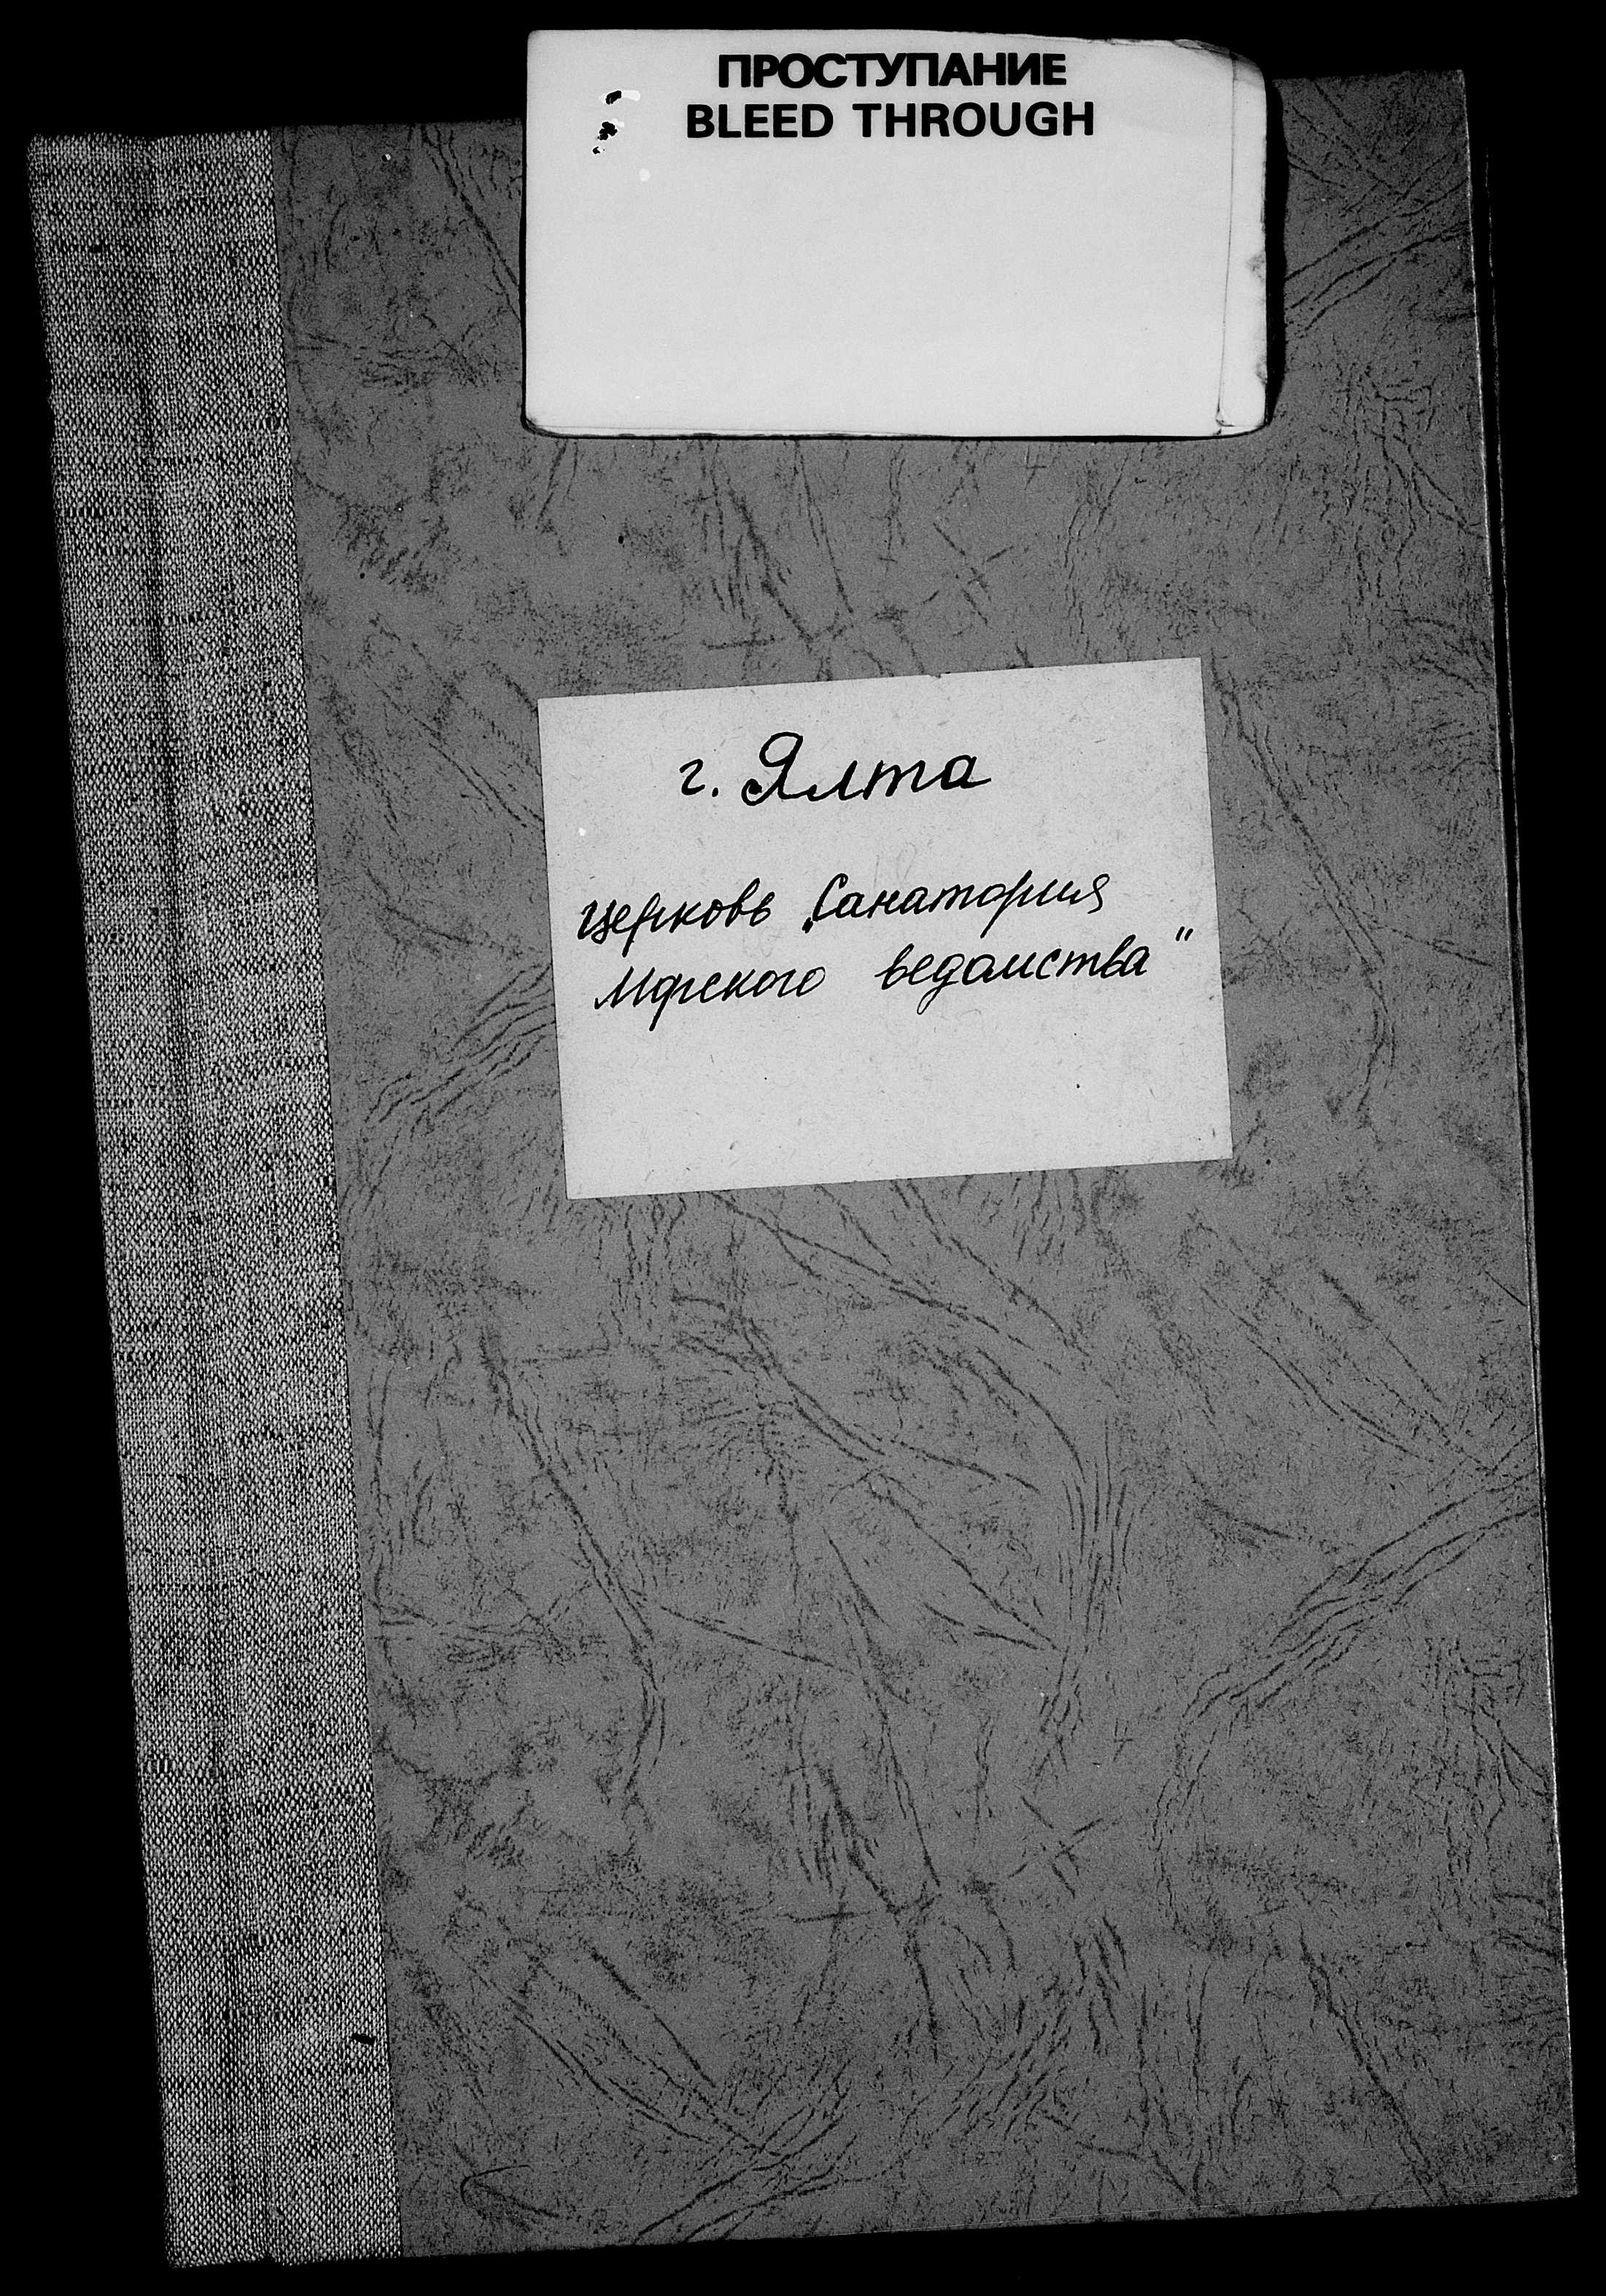 ПРОСТУПАНИЕ
BLEED THROUGH
г. Ялта
церковь „Санатория
Морского ведомства"